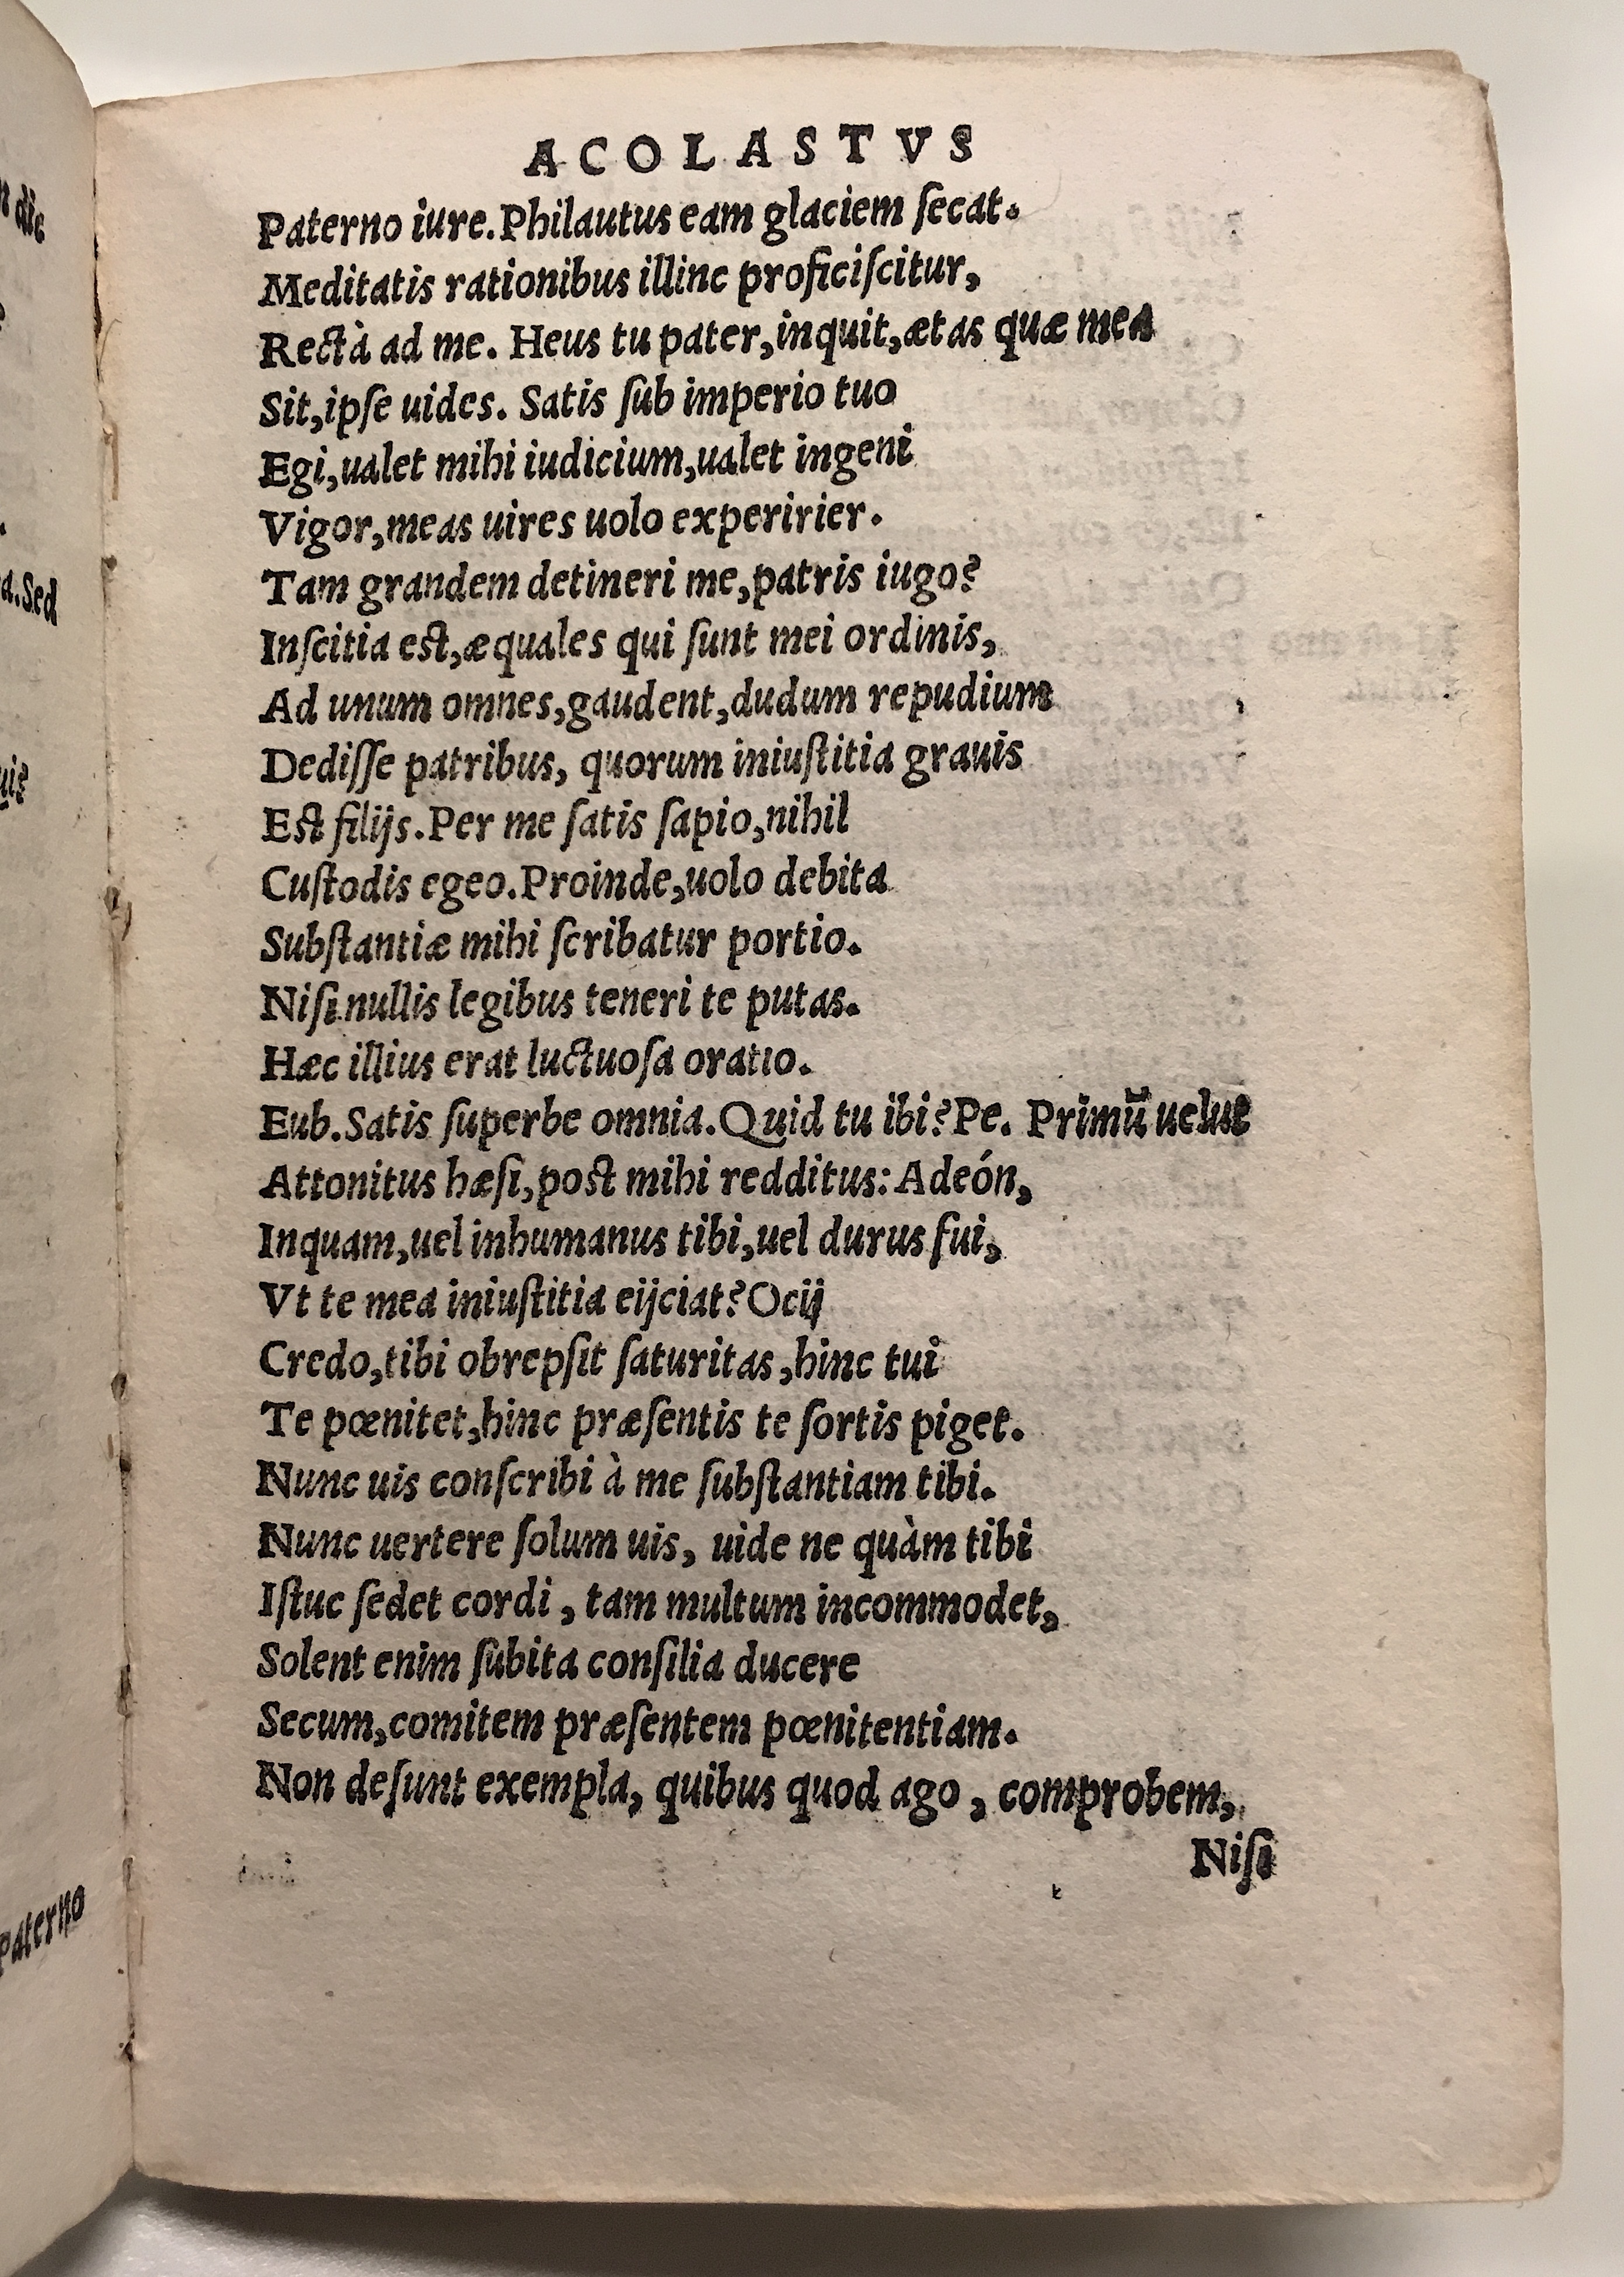 ACOLASTVS
Paterno iure.Philautus eam glaciem ſecat.
Meditatis rationibus illinc proficiſcitur,
Rectà ad me. Heus tu pater,inquit,ætas quæ mea
Sit,ipſe uides. Satis ſub imperio tuo
Egi,ualet mihi iudicium,ualet ingeni
Vigor,meas uires uolo experirier.
Tam grandem detineri me,patris iugo?
Inſcitia eſt,æquales qui ſunt mei ordinis,
Ad unum omnes,gaudent,dudum repudium
Dediſſe patribus, quorum iniuſtitia grauis
Eſt filijs.Per me ſatis ſapio,nihil
Cuſtodis egeo.Proinde,uolo debita
Subſtantiæ mihi ſcribatur portio.
Niſi nullis legibus teneri te putas.
Hæc illius erat luctuoſa oratio.
Eub.Satis ſuperbe omnia.Quid tu ibi?Pe. Primū uelut
Attonitus hæſi,poſt mihi redditus:Adeón,
Inquam,uel inhumanus tibi,uel durus fui,
Vt te mea iniuſtitia eijciat?Ocij
Credo,tibi obrepſit ſaturitas,hinc tui
Te pœnitet,hinc præſentis te ſortis piget.
Nunc uis conſcribi à me ſubſtantiam tibi.
Nunc uertere ſolum uis, uide ne quàm tibi
Iſtuc ſedet cordi, tam multum incommodet,
Solent enim ſubita conſilia ducere
Secum,comitem præſentem pœnitentiam.
Non deſunt exempla, quibus quod ago, comprobem,
Niſi
dic
a.Sed
uis
Paterno